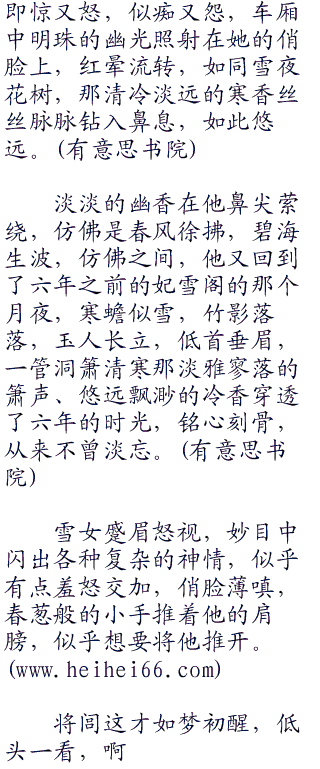 即惊又怒，似痴又怨，车厢
中明珠的幽光照射在她的俏
脸上，红晕流转，如同雪夜
花树，那清冷淡远的寒香丝
丝脉脉钻入鼻息，如此悠
远。(有意思书院)
淡淡的幽香在他鼻尖萦
绕，仿佛是春风徐拂，碧海
生波，仿佛之间，他又回到
了六年之前的妃雪阁的那个
月夜，寒蟾似雪，竹影落
落，玉人长立，低首垂眉，
一管洞箫清寒那淡雅寥落的
箫声、悠远飘渺的冷香穿透
了六年的时光，铭心刻骨，
从来不曾淡忘。(有意思书
院)
雪女蹙眉怒视，妙目中
闪出各种复杂的神情，似乎
有点羞怒交加，俏脸薄嗔，
春葱般的小手推着他的肩
膀，似乎想要将他推开。
(www.heihei66.com)
将闾这才如梦初醒，低
头一看，啊